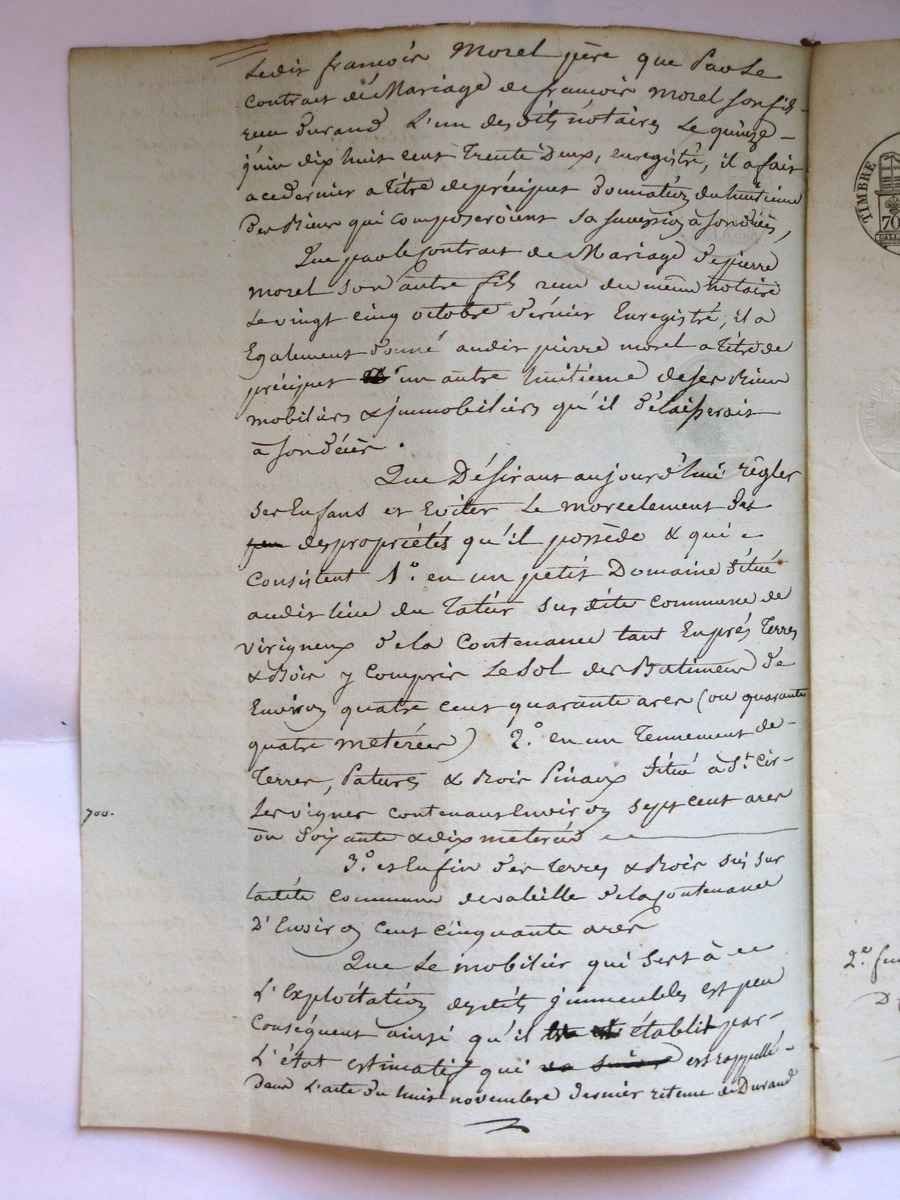 Ledit françois Morel père que par le
contrat de Mariage de françois morel son fils
recu durand L'un desdits nôtaires Le quinze
juin dix huit cent Trente Deux, enregistré, il a fait
a ce dernier a titre de préciput Donnation du huitieme
Des Biens qui composeroient sa succession à son décès,
Que par le Contrat de Mariage de pierre
morel son autre fils recu du même notaire
Le vingt cinq octobre dernier Enregistré, il a
Egalement donné audit pierre morel a titre de
préciput un autre huitieme de ses Biens
mobiliers & jmmobiliers qu'il délaisserait
à son décès.
Que Désirant aujourd'hui règler
ses Enfans et Eviter Le morcelement des
des propriétés qu'il possède & qui
Consistent 1.° en un petit Domaine situé
audit lieu du susdite commune de
virigneux de la Contenance tant En prés Terres
& Bois y Compris Le Sol des Batimens De
Environ quatre cent quarante ares (ou quarante
quatre meterées) 2.° en un Tennement de
Terres, Patures & Bois Pinaux situé à St. Cir
Les vignes contenant Environ sept cent ares
700.
ou Soixante & dix meterées
3.° et Enfin des Terres & Bois sis sur
ladite commune de valeille de la Contenance
D'Environ cent cinquante ares
Que Le mobilier qui sert à
L'Exploitation desdits jmmeubles est peu
Conséquent ainsi qu'il établit par
L'état estimatif qui est rappellé
Dans L'acte du huit novembre dernier retenu de Durand
TIMBRE
70
2.°